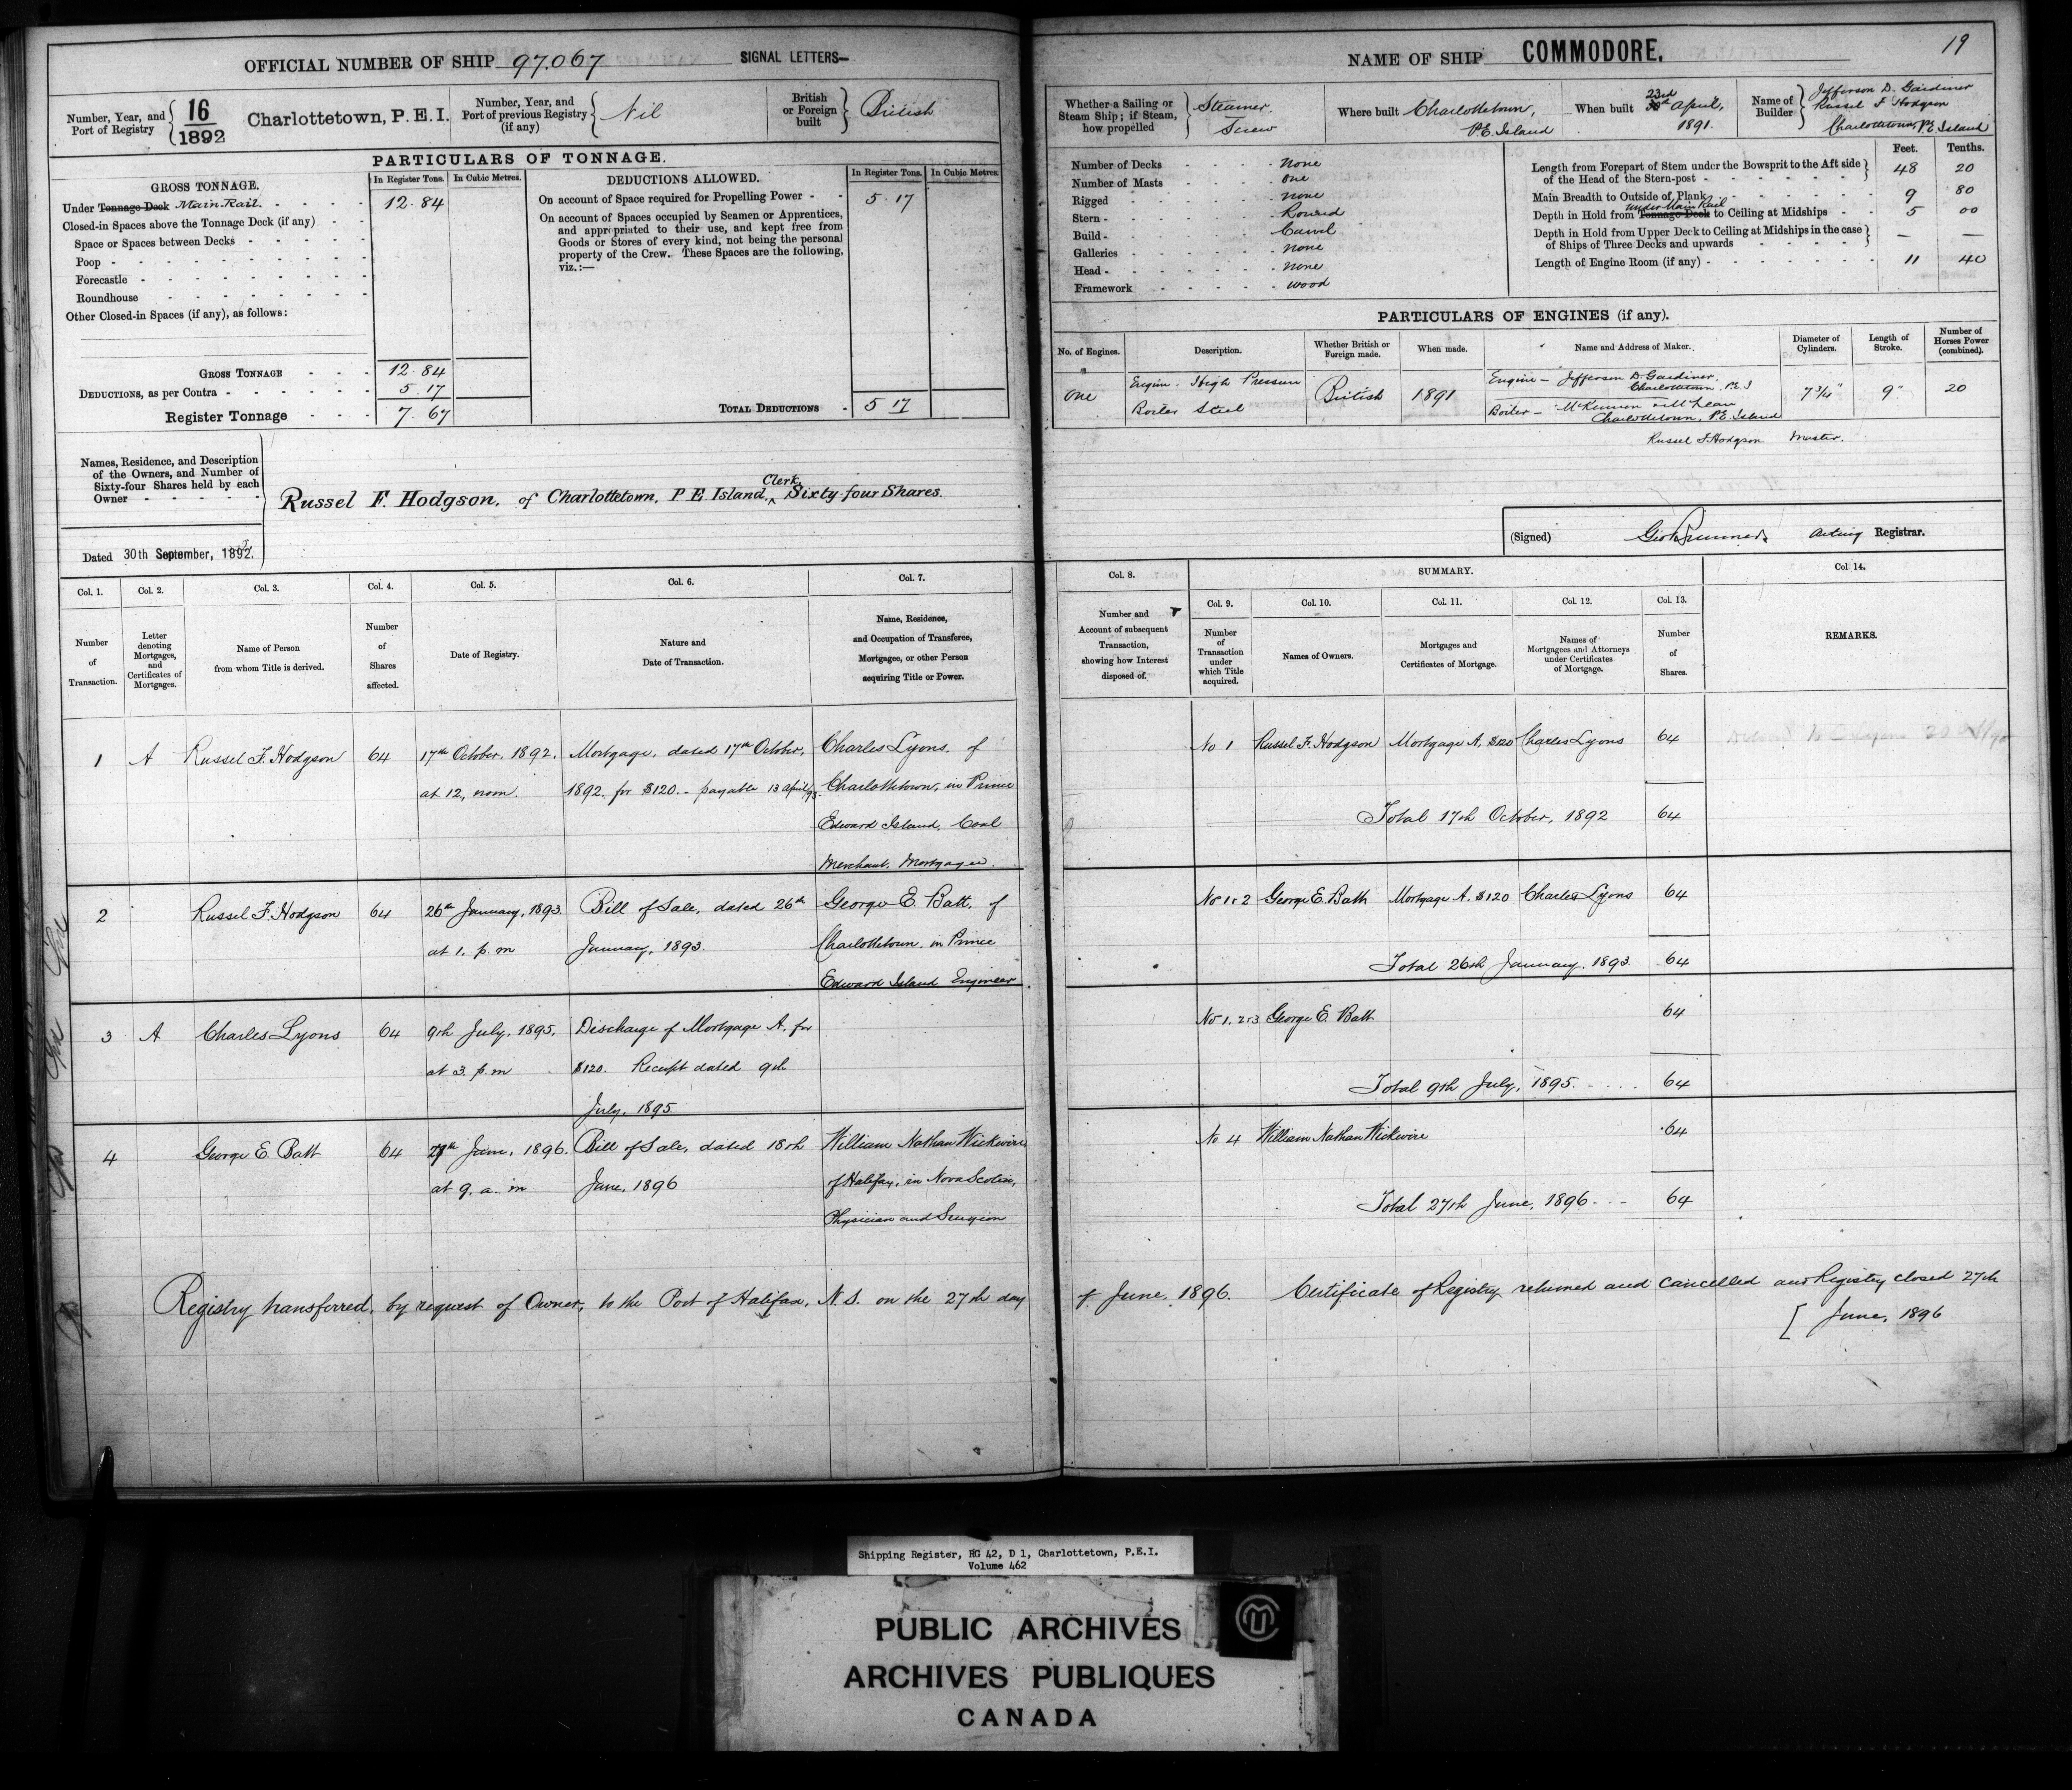 OFFICIAL NUMBER OF SHIP 97.067 SIGNAL LETTERS—
Number, Year, and Port of Registry 16/1892 Charlottetown, P.E.I.
Number, Year, and Port of previous Registry (if any) Nil
British or Foreign built British
PARTICULARS OF TONNAGE.
GROSS TONNAGE. In Register Tons. In Cubic Metres.
Under Tonnage Deck Main Rail. 12.84
Closed-in Spaces above the Tonnage Deck (if any)
Space or Spaces between Decks
Poop
Forecastle
Roundhouse
Other Closed-in Spaces (if any), as follows:
GROSS TONNAGE 12.84
DEDUCTIONS, as per Contra 5.17
Register Tonnage 7.67
DEDUCTIONS ALLOWED. In Register Tons. In Cubic Metres.
On account of Space required for Propelling Power 5.17
On account of Spaces occupied by Seamen or Apprentices,
and appropriated to their use, and kept free from
Goods or Stores of every kind, not being the personal
property of the Crew. These Spaces are the following,
viz.:—
TOTAL DEDUCTIONS 5 17
Names, Residence, and Description
of the Owners, and Number of
Sixty-four Shares held by each
Owner
Russel F. Hodgson, of Charlottetown, P E Island. Clerk Sixty-four Shares.
Dated 30th September, 1892.
NAME OF SHIP COMMODORE. 19
Whether a Sailing or Steam Ship; if Steam, how propelled Steamer. Screw
Where built Charlottetown, P.E. Island
When built 23rd April, 1891.
Name of Builder Jefferson D. Gardiner
Russel F Hodgson
Charlottetown, P.E. Island
Number of Decks none
Number of Masts one
Rigged none
Stern Round
Build Carvel
Galleries none
Head none
Framework wood
Feet. Tenths.
Length from Forepart of Stem under the Bowsprit to the Aft side
of the Head of the Stern-post 48 20
Main Breadth to Outside of Plank 9 80
Depth in Hold from Tonnage Deck under Main Rail to Ceiling at Midships 5 00
Depth in Hold from Upper Deck to Ceiling at Midships in the case
of Ships of Three Decks and upwards — —
Length of Engine Room (if any) 11 40
PARTICULARS OF ENGINES (if any).
No. of Engines. Description. Whether British or Foreign made. When made. Name and Address of Maker. Diameter of Cylinders. Length of Stroke. Number of Horses Power (combined).
One Engine. High Pressure British 1891 Engine — Jefferson D. Gardiner, Charlottetown. P.E.I 7 3/4" 9" 20
Boiler Steel Boiler — McKinnon & McLean Charlottetown, P.E. Island
Russel F. Hodgson Master.
(Signed) Acting Registrar.
Col. 1. Col. 2. Col. 3. Col. 4. Col. 5. Col. 6. Col. 7.
Number of Transaction.
Letter denoting Mortgages, and Certificates of Mortgages.
Name of Person from whom Title is derived.
Number of Shares affected.
Date of Registry.
Nature and Date of Transaction.
Name, Residence, and Occupation of Transferee, Mortgagee, or other Person acquiring Title or Power.
Col. 8. SUMMARY. Col 14.
Col. 9. Col. 10. Col. 11. Col. 12. Col. 13.
Number and Account of subsequent Transaction, showing how Interest disposed of.
Number of Transaction under which Title acquired.
Names of Owners.
Mortgages and Certificates of Mortgage.
Names of Mortgagees and Attorneys under Certificates of Mortgage.
Number of Shares.
REMARKS.
1 A Russel F. Hodgson 64 17th October, 1892. Mortgage, dated 17th October, Charles Lyons, of
at 12, noon. 1892. for $120. - payable 13 April, 93. Charlottetown, in Prince
Edward Island. Coal
Merchant. Mortgagee.
No 1 Russel F. Hodgson Mortgage A, $120 Charles Lyons 64
Total 17th October, 1892 64
2 Russel F. Hodgson 64 26th January, 1893. Bill of Sale, dated 26th George E. Batt, of
at 1. p.m January, 1893. Charlottetown. in Prince
Edward Island Engineer
Nos 1 & 2 George E. Batt Mortgage A. $120 Charles Lyons 64
Total 26th January, 1893. 64
3 A Charles Lyons 64 9th July, 1895. Discharge of Mortgage A. for
at 3. p.m $120. Receipt dated 9th
July, 1895
Nos 1, 2 & 3 George E. Batt 64
Total 9th July, 1895. 64
4 George E. Batt 64 27th June, 1896. Bill of Sale, dated 18th William Nathan Wickwire
at 9. a. m June, 1896 of Halifax, in Nova Scotia,
Physician and Surgeon
No 4 William Nathan Wickwire 64
Total 27th June, 1896 64
Registry transferred, by request of Owner, to the Port of Halifax, N.S. on the 27th day of June, 1896. Certificate of Registry returned and cancelled and Registry closed 27th
[ June, 1896
Shipping Register, RG 42, D 1, Charlottetown, P.E.I.
Volume 462
PUBLIC ARCHIVES
ARCHIVES PUBLIQUES
CANADA